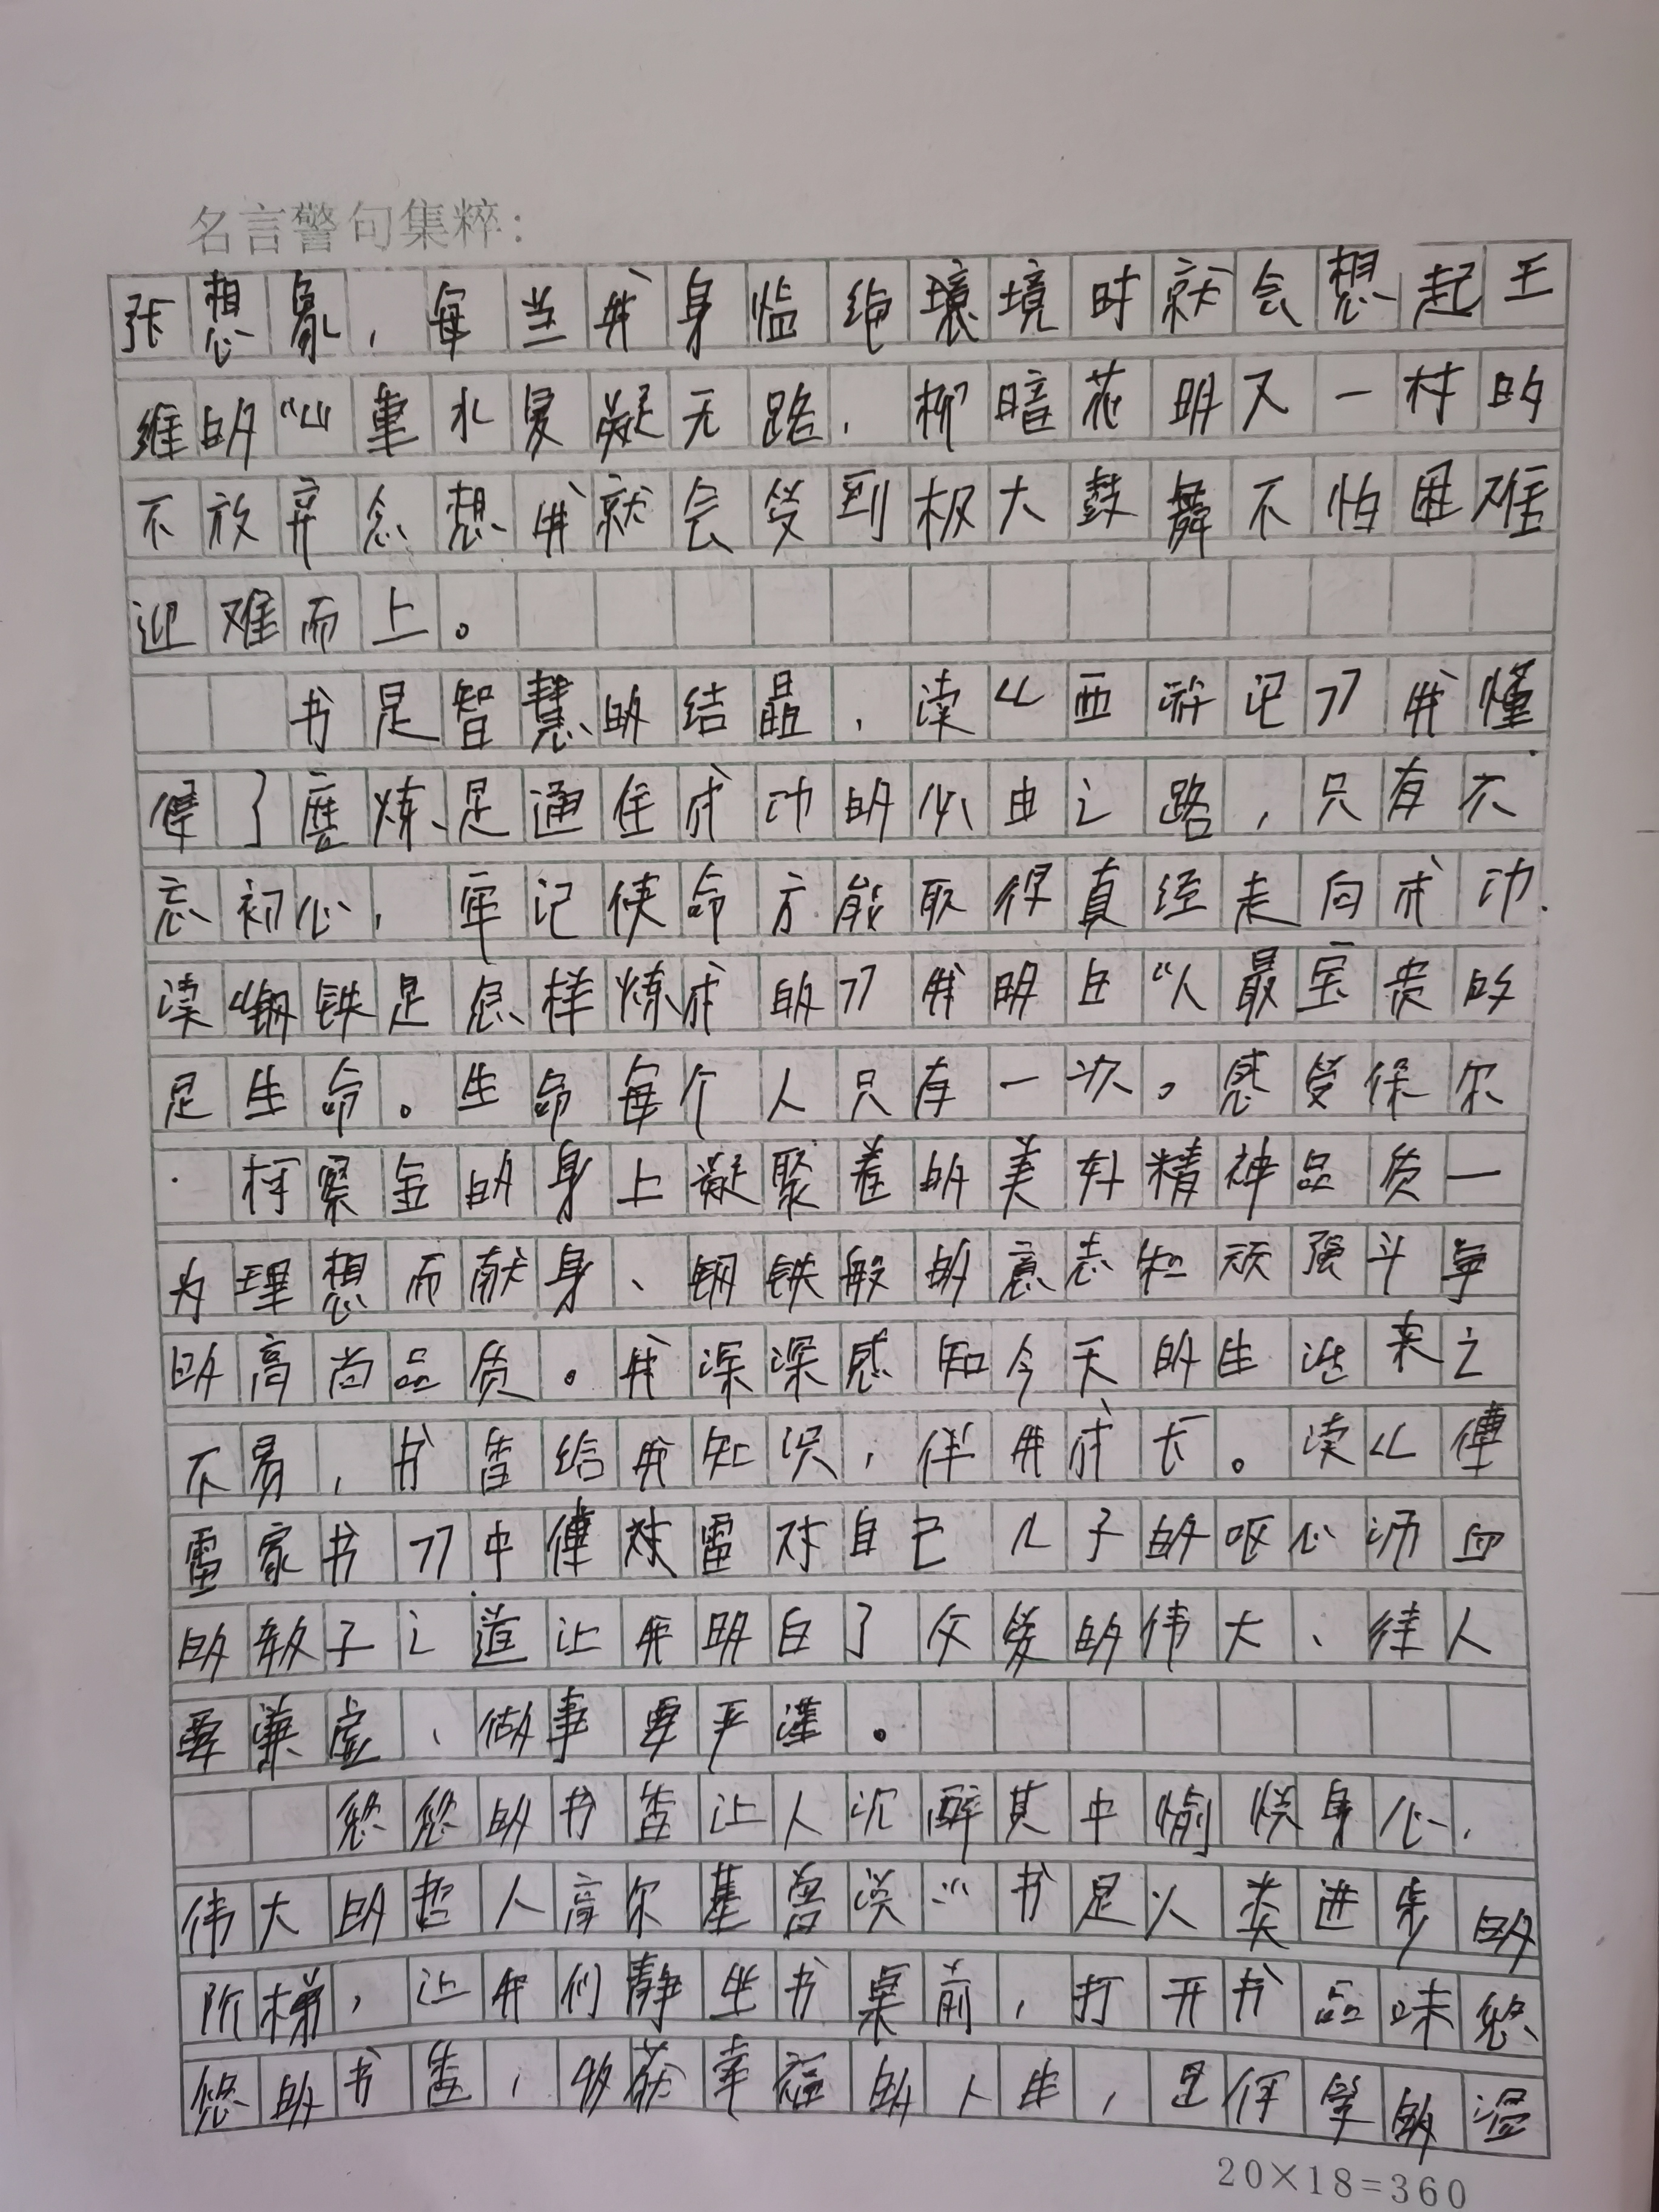 名言警句集粹：
张想象，每当我身临绝境境时就会想起王
维的“山重水复凝无路，柳暗花明又一村的
不放弃念想我就会受到极大鼓舞不怕困难
迎难而上。
书是智慧的结晶，读《西游记》我懂
得了磨炼是通往成功的必由之路，只有不
忘初心，牢记使命方能取得真经走向成功.
读《钢铁是怎样炼成的》我明白“人最宝贵的
是生命。生命每个人只有一次。感受保尔
·柯察金的身上凝聚着的美好精神品质一
为理想而献身、钢铁般的意志和顽强斗争
的高尚品质。我深深感知今天的生活来之
不易，书香给我知识，伴我成长。读《傅
雷家书》中傅雷对自己儿子的呕心沥血
的教子之道让我明白了父爱的伟大、待人
要谦虚、做事要严谨。
悠悠的书香让人沉醉其中愉悦身心，
伟大的哲人高尔基曾说“书是人类进步的
阶梯，让我们静坐书桌前，打开书品味悠
悠的书香，收获幸福的人生，是何等的温
20×18=360